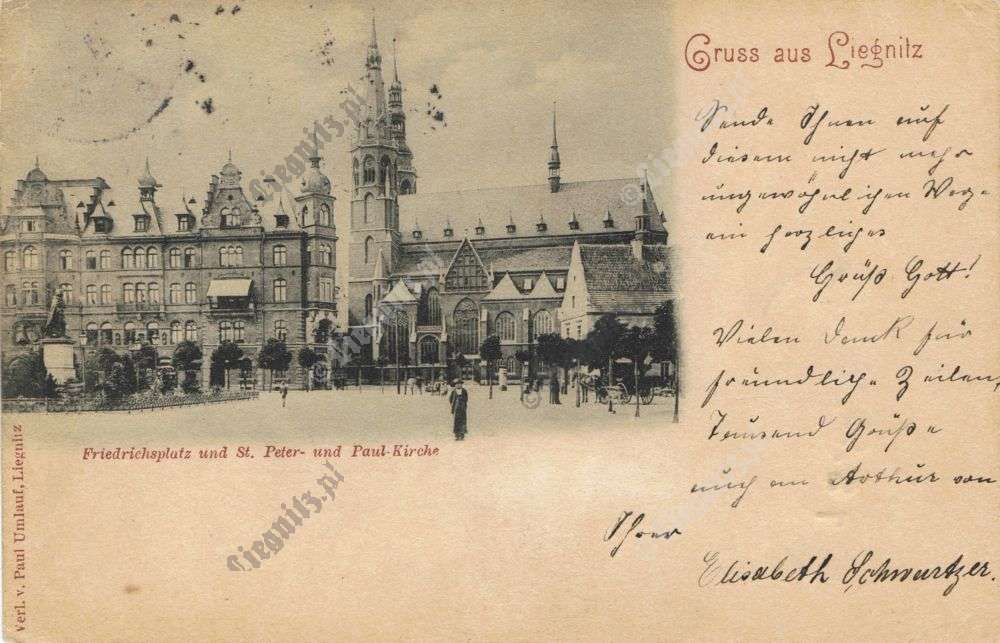 Gruss aus Liegnitz
Sende Ihnen auf
diesem nicht mehr
ungewöhnlichen Wege
ein herzliches
Grüß Gott!
Vielen Dank für
freundliche Zeilen,
Tausend Grüße
auch an Arthur von
Ihrer
Elisabeth Schwurtzer.
Friedrichsplatz und St. Peter- und Paul-Kirche
Verl. v. Paul Umlauf, Liegnitz
© Liegnitz.pl
Liegnitz.pl